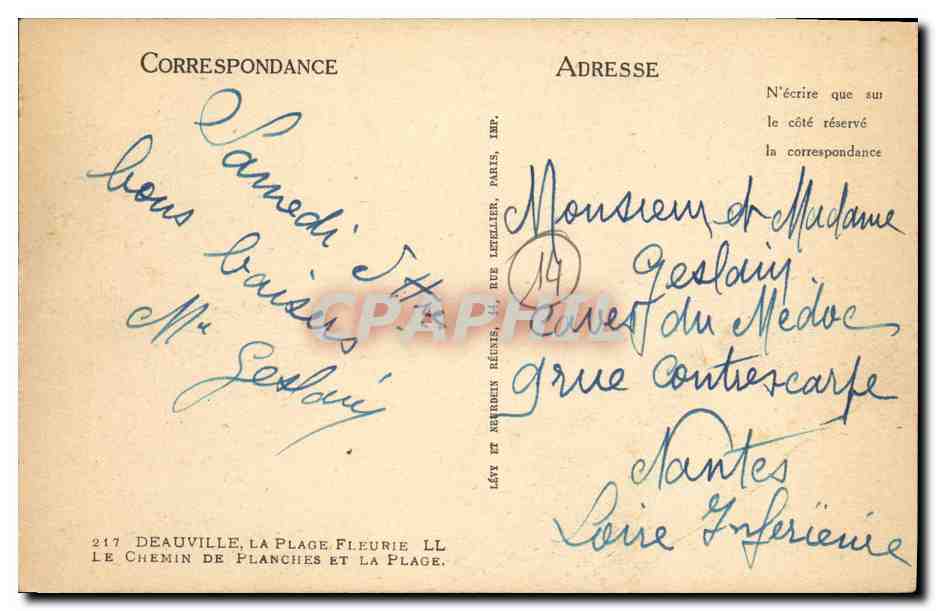 CORRESPONDANCE
Samedi 5 Hrs
bons baisers
M. Geslain
217 DEAUVILLE, LA PLAGE FLEURIE LL
LE CHEMIN DE PLANCHES ET LA PLAGE.
LÉVY ET NEURDEIN RÉUNIS, 44, RUE LETELLIER, PARIS, IMP.
ADRESSE
N'écrire que sur
le côté réservé
la correspondance
Monsieur et Madame
Geslain
14
Caves du Médoc
9 rue Contrescarpe
Nantes
Loire Inférieure
CPAPHIL